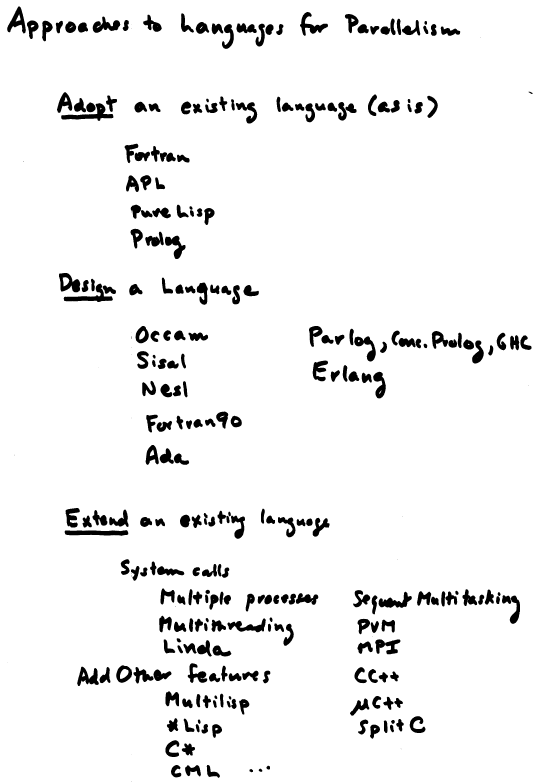 Approaches to Languages for Parallelism
Adopt an existing language (as is)
Fortran
APL
Pure Lisp
Prolog
Design a Language
Occam Parlog, Conc. Prolog, GHC
Sisal Erlang
Nesl
Fortran90
Ada
Extend an existing language
System calls
Multiple processes Sequent Multitasking
Multithreading PVM
Linda MPI
Add Other features CC++
Multilisp μC++
*Lisp Split C
C*
CML ...